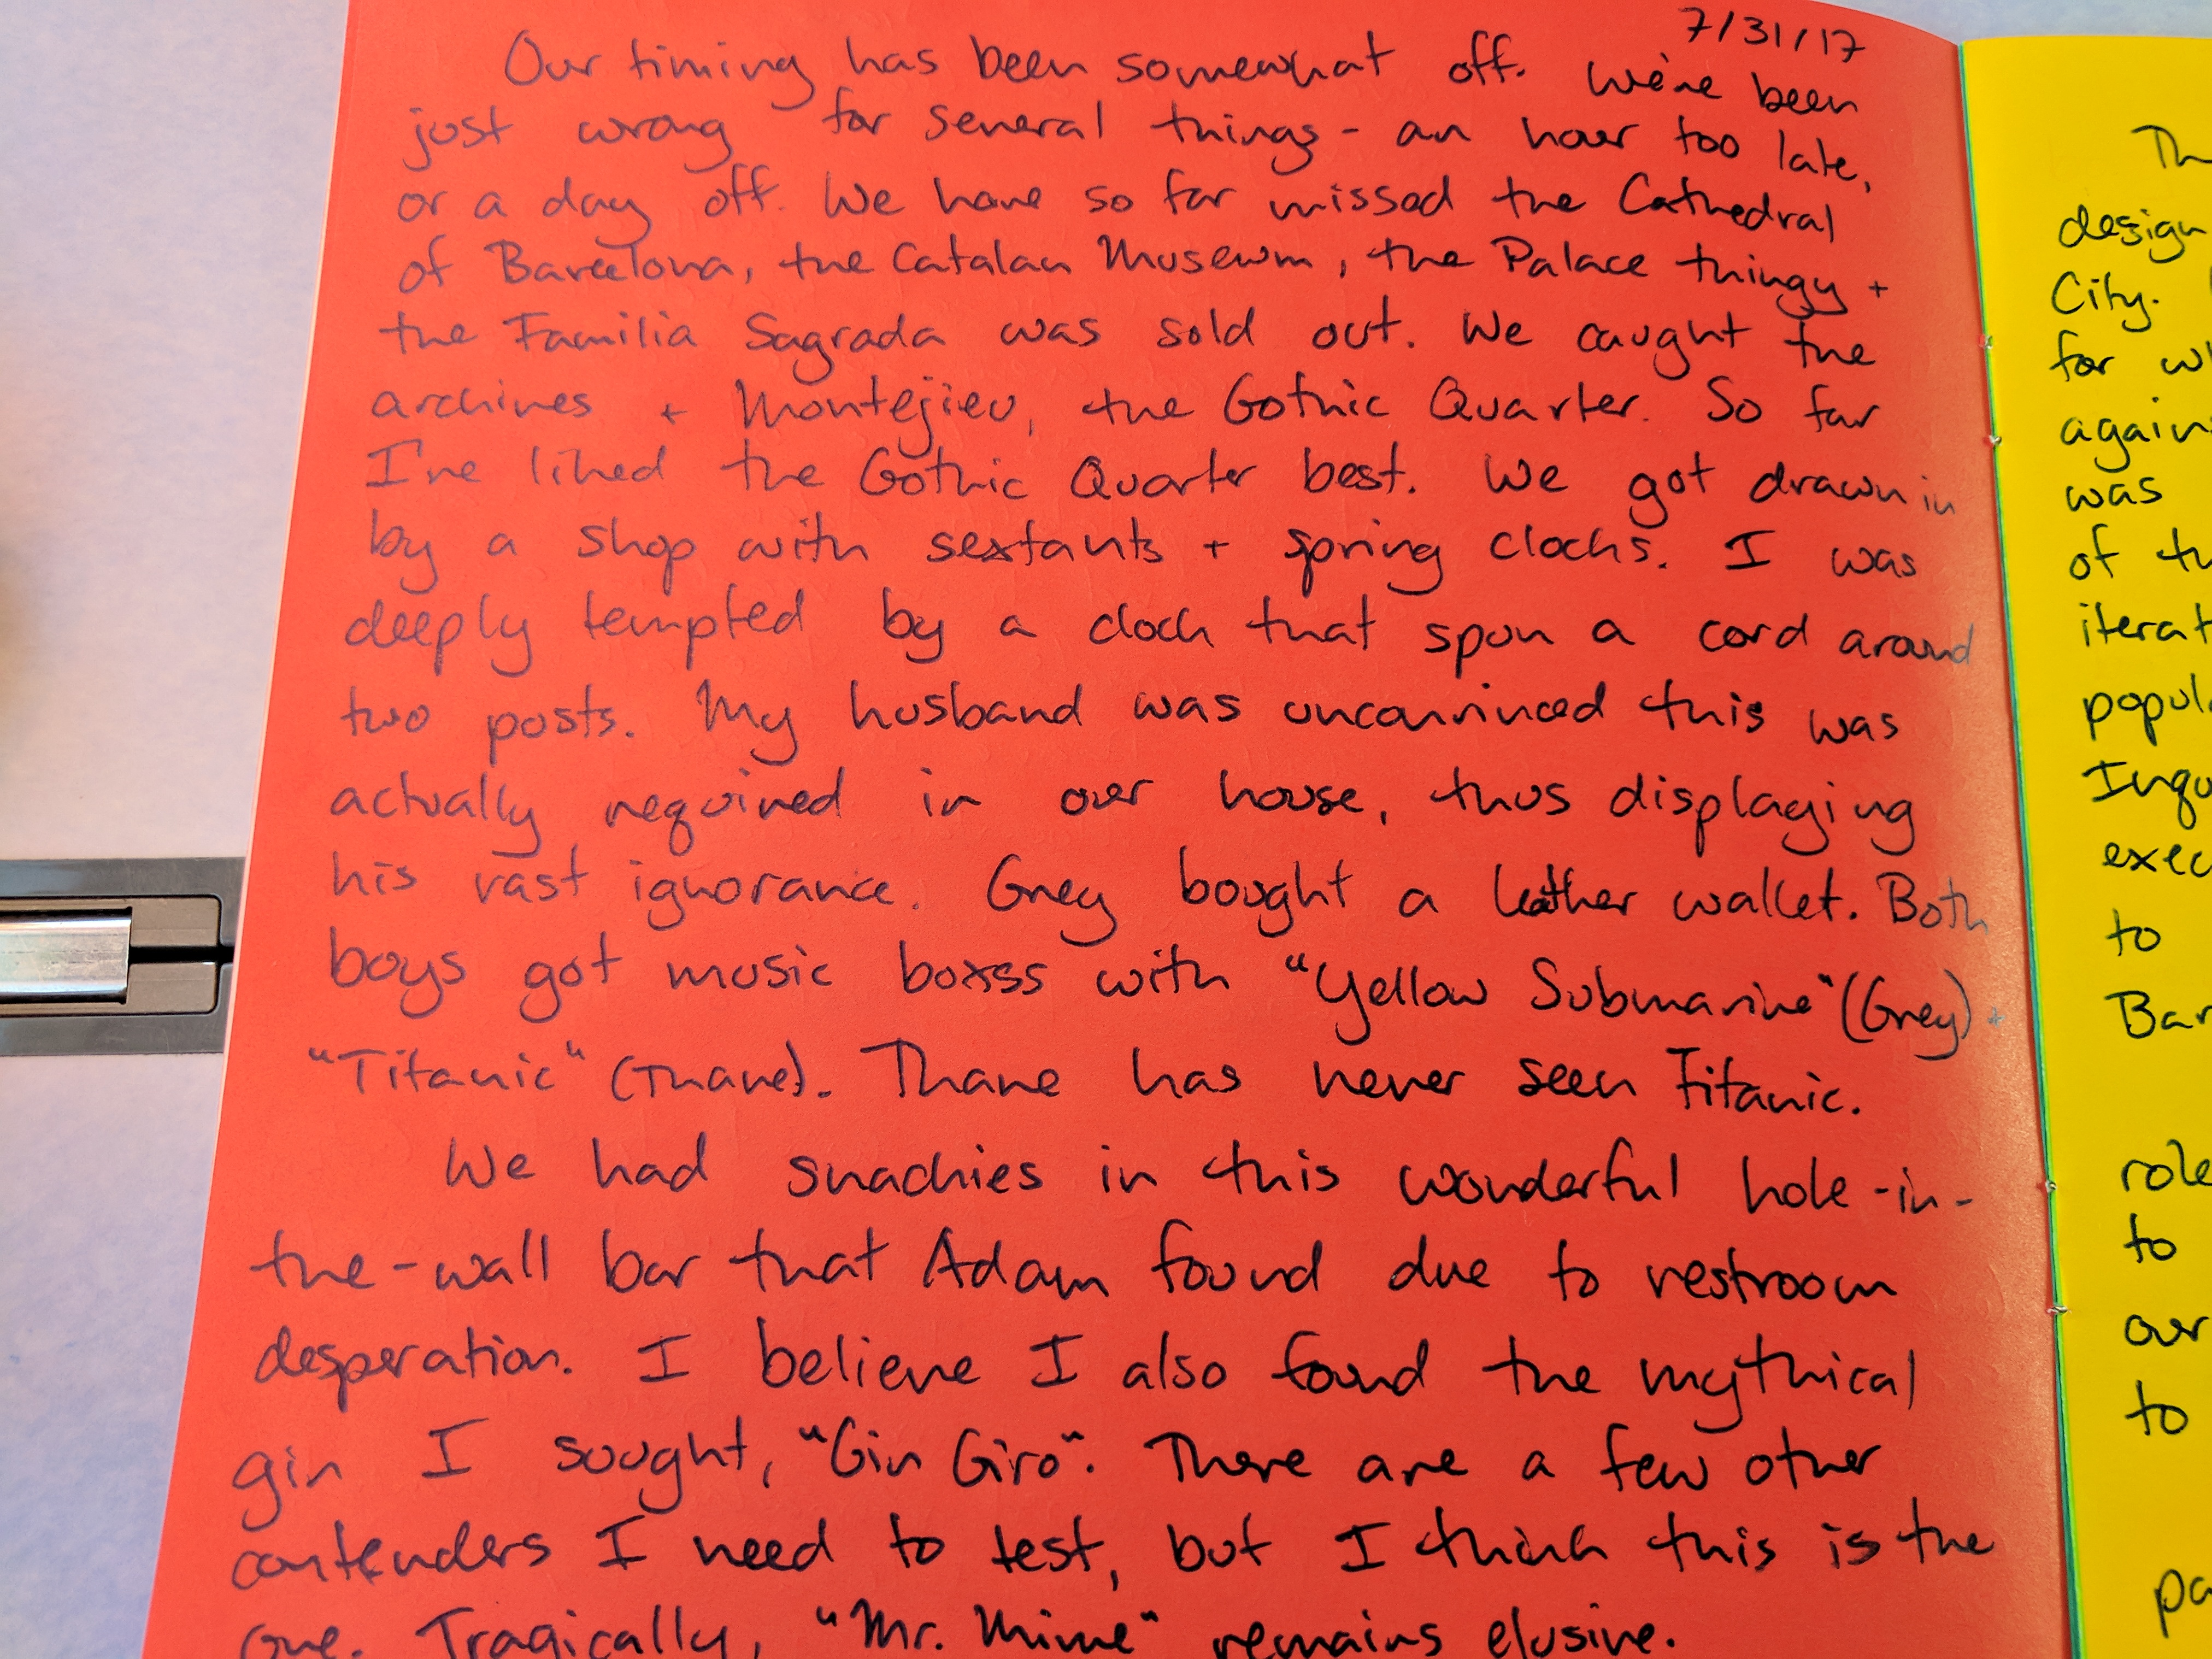 7/31/17
Our timing has been somewhat off. We've been
just wrong for several things - an hour too late,
or a day off. We have so far missed the Cathedral
of Barcelona, the Catalan Museum, the Palace thingy +
the Familia Sagrada was sold out. We caught the
archives + Montejieu, the Gothic Quarter. So far
I've liked the Gothic Quarter best. We got drawn in
by a shop with sextants + spring clocks. I was
deeply tempted by a clock that spun a cord around
two posts. My husband was unconvinced this was
actually required in our house, thus displaying
his vast ignorance. Grey bought a leather wallet. Both
boys got music boxes with "Yellow Submarine" (Grey) +
"Titanic" (Thane). Thane has never seen Titanic.
We had snackies in this wonderful hole-in-
the-wall bar that Adam found due to restroom
desperation. I believe I also found the mythical
gin I sought, "Gin Giro". There are a few other
contenders I need to test, but I think this is the
one. Tragically, "Mr. Mime" remains elusive.
Th
design
City.
for wh
again
was
of th
iterat
popul
Inqu
exec
to
Bar
role
to
our
to
pa